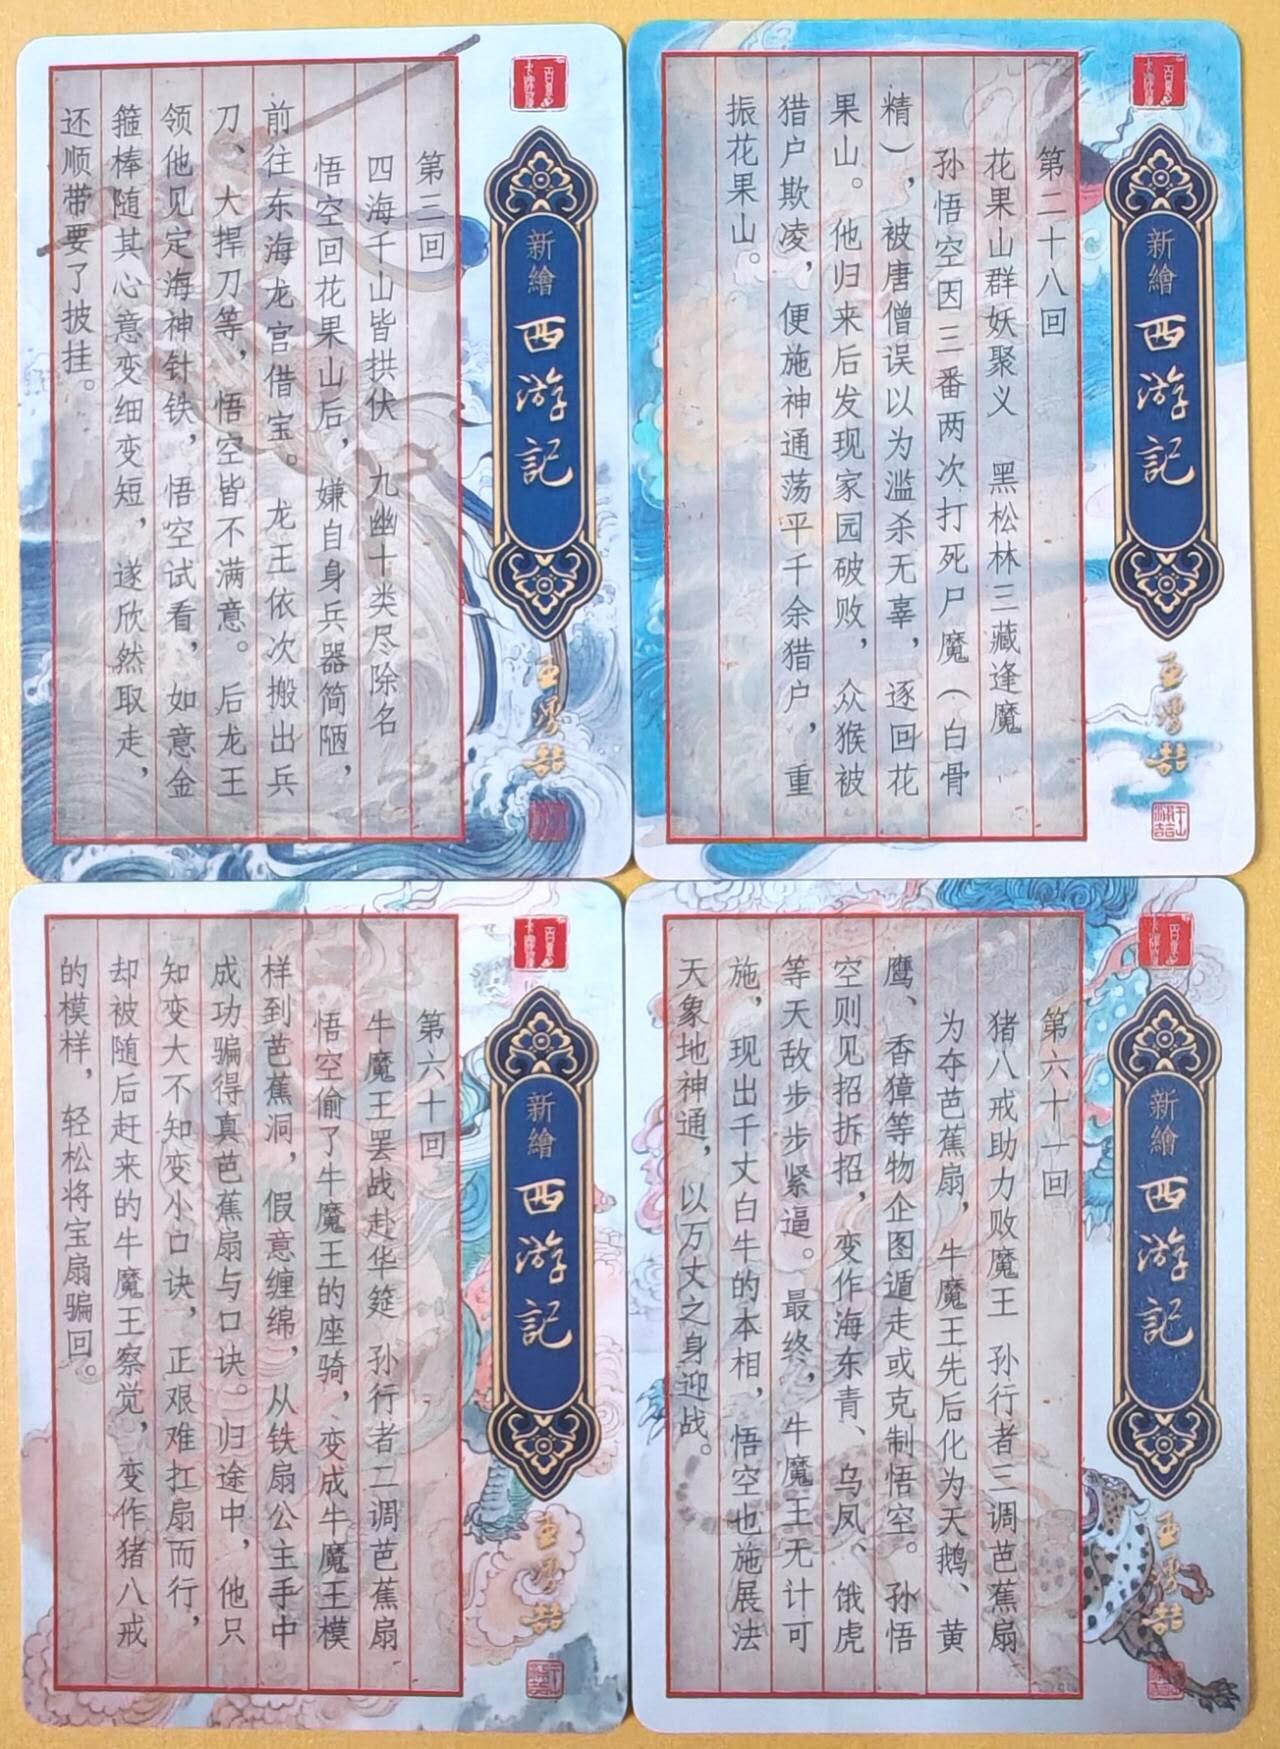 新繪
西游記
第三回
四海千山皆拱伏 九幽十类尽除名
悟空回花果山后，嫌自身兵器简陋，
前往东海龙宫借宝。龙王依次搬出兵
刀、大捍刀等，悟空皆不满意。后龙王
领他见定海神针铁，悟空试看，如意金
箍棒随其心意变细变短，遂欣然取走，
还顺带要了披挂。
新繪
西游記
第二十八回
花果山群妖聚义 黑松林三藏逢魔
孙悟空因三番两次打死尸魔（白骨
精），被唐僧误以为滥杀无辜，逐回花
果山。他归来后发现家园破败，众猴被
猎户欺凌，便施神通荡平千余猎户，重
振花果山。
新繪
西游記
第六十回
牛魔王罢战赴华筵 孙行者二调芭蕉扇
悟空偷了牛魔王的座骑，变成牛魔王模
样到芭蕉洞，假意缠绵，从铁扇公主手中
成功骗得真芭蕉扇与口诀。归途中，他只
知变大不知变小口诀，正艰难扛扇而行，
却被随后赶来的牛魔王察觉，变作猪八戒
的模样，轻松将宝扇骗回。
新繪
西游記
第六十一回
猪八戒助力败魔王 孙行者三调芭蕉扇
为夺芭蕉扇，牛魔王先后化为天鹅、黄
鹰、香獐等物企图遁走或克制悟空。孙悟
空则见招拆招，变作海东青、乌凤、饿虎
等天敌步步紧逼。最终，牛魔王无计可
施，现出千丈白牛的本相，悟空也施展法
天象地神通，以万丈之身迎战。